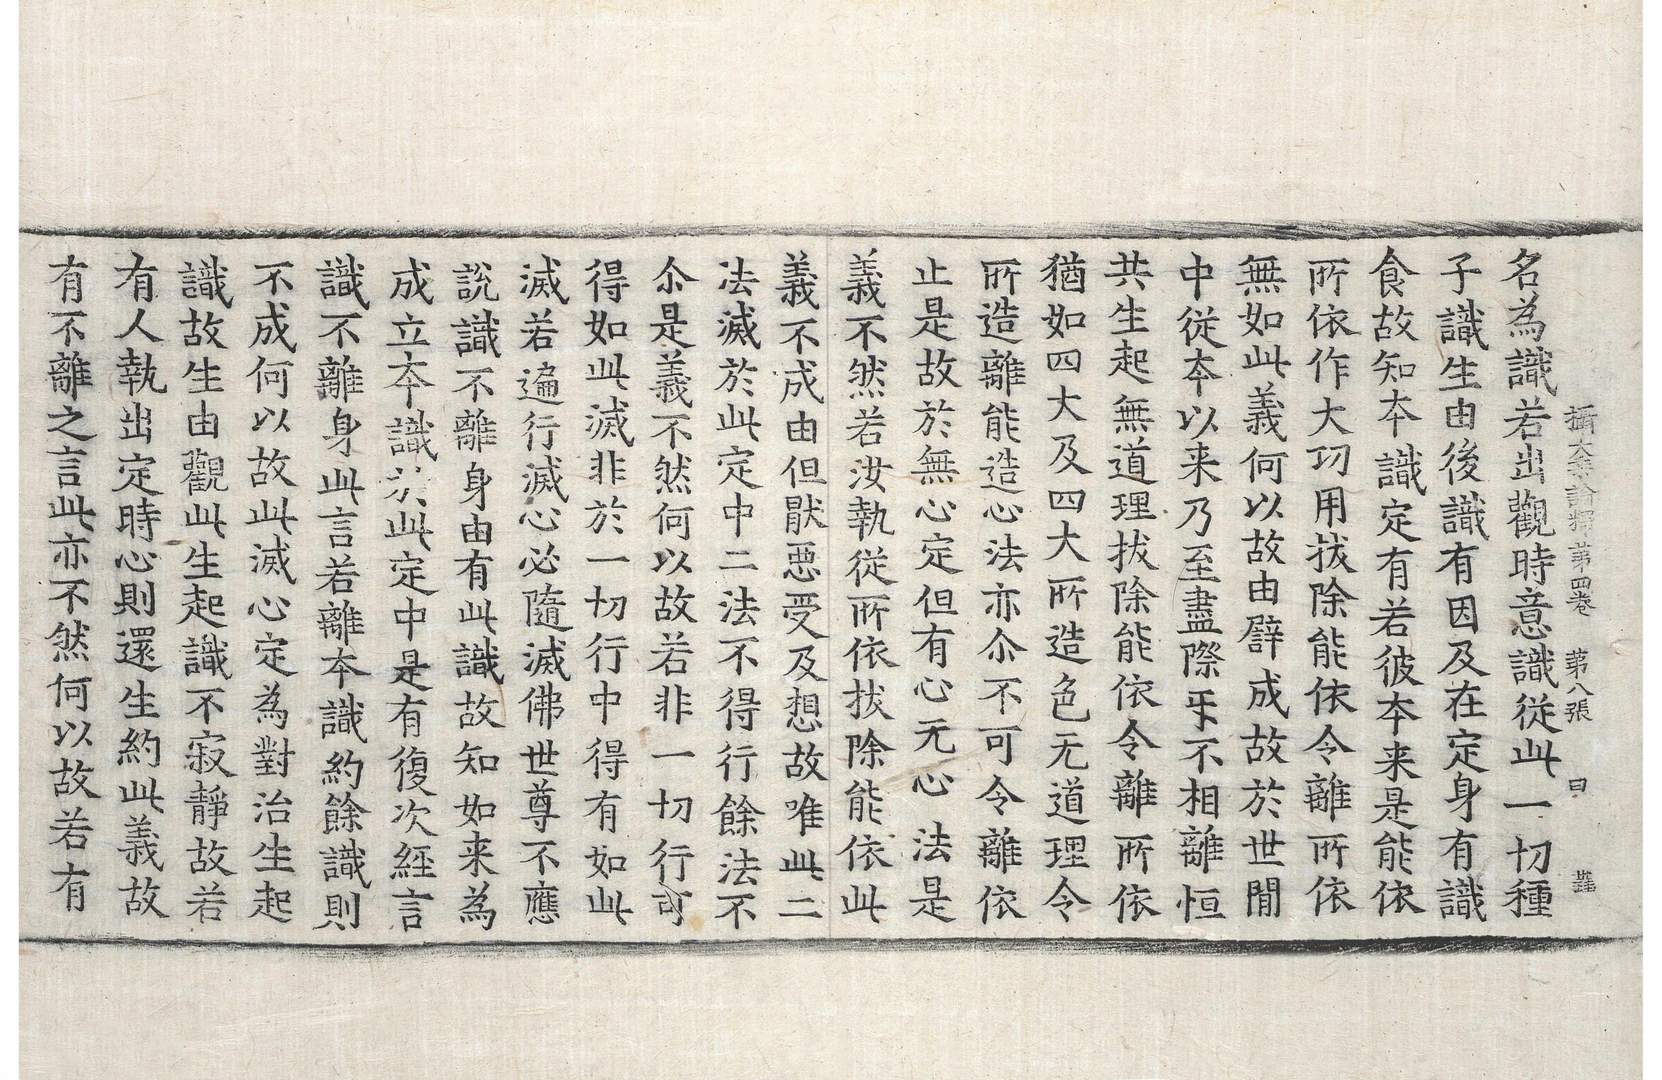 攝大乘論釋第四卷 第八張 曰
名為識若出觀時意識從此一切種
子識生由後識有因及在定身有識
食故知本識定有若彼本来是能依
所依作大功用拔除能依令離所依
無如此義何以故由譬成故於世間
中從本以来乃至盡際互不相離恒
共生起無道理拔除能依令離所依
猶如四大及四大所造色无道理令
所造離能造心法亦尒不可令離依
止是故於無心定但有心无心法是
義不然若汝執從所依拔除能依此
義不成由但猒惡受及想故唯此二
法滅於此定中二法不得行餘法不
尒是義不然何以故若非一切行可
得如此滅非於一切行中得有如此
滅若遍行滅心必隨滅佛世尊不應
說識不離身由有此識故知如来為
成立本識於此定中是有復次經言
識不離身此言若離本識約餘識則
不成何以故此滅心定為對治生起
識故生由觀此生起識不寂靜故若
有人執出定時心則還生約此義故
有不離之言此亦不然何以故若有